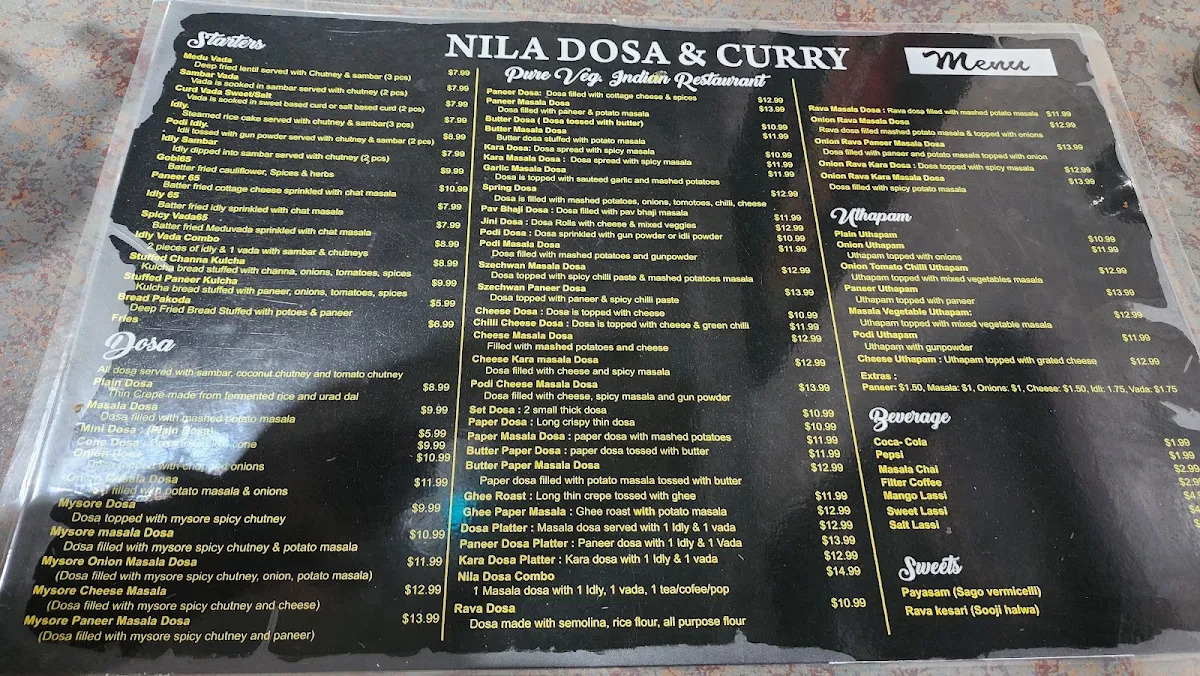 NILA DOSA & CURRY
Pure Veg. Indian Restaurant
Menu
Starters
Medu Vada
Deep fried lentil served with Chutney & sambar (3 pcs) $7.99
Sambar Vada
Vada is sooked in sambar served with chutney (2 pcs) $7.99
Curd Vada Sweet/Salt
Vada is sooked in sweet based curd or salt based curd (2 pcs) $7.99
Idly.
Steamed rice cake served with chutney & sambar(3 pcs) $7.99
Podi Idly.
Idli tossed with gun powder served with chutney & sambar (2 pcs) $8.99
Idly Sambar
Idly dipped into sambar served with chutney (2 pcs) $7.99
Gobi65
Batter fried cauliflower, Spices & herbs $9.99
Paneer 65
Batter fried cottage cheese sprinkled with chat masala $10.99
Idly 65
Batter fried idly sprinkled with chat masala $7.99
Spicy Vada65
Batter fried Meduvada sprinkled with chat masala $7.99
Idly Vada Combo
2 pieces of idly & 1 vada with sambar & chutneys $8.99
Stuffed Channa Kulcha
Kulcha bread stuffed with channa, onions, tomatoes, spices $8.99
Stuffed Paneer Kulcha
Kulcha bread stuffed with paneer, onions, tomatoes, spices $9.99
Bread Pakoda
Deep Fried Bread Stuffed with potoes & paneer $5.99
Fries $6.99
Dosa
All dosa served with sambar, coconut chutney and tomato chutney
Plain Dosa $8.99
Thin Crepe made from fermented rice and urad dal
Masala Dosa $9.99
Dosa filled with mashed potato masala
Mini Dosa : (Plain Dosa) $5.99
Cone Dosa $9.99
Onion Dosa $10.99
with chopped onions
Dosa $11.99
filled with potato masala & onions
Mysore Dosa $9.99
Dosa topped with mysore spicy chutney
Mysore masala Dosa $10.99
Dosa filled with mysore spicy chutney & potato masala
Mysore Onion Masala Dosa $11.99
(Dosa filled with mysore spicy chutney, onion, potato masala)
Mysore Cheese Masala $12.99
(Dosa filled with mysore spicy chutney and cheese)
Mysore Paneer Masala Dosa $13.99
(Dosa filled with mysore spicy chutney and paneer)
Paneer Dosa: Dosa filled with cottage cheese & spices $12.99
Paneer Masala Dosa $13.99
Dosa filled with paneer & potato masala
Butter Dosa ( Dosa tossed with butter) $10.99
Butter Masala Dosa $11.99
Butter dosa stuffed with potato masala
Kara Dosa: Dosa spread with spicy masala $10.99
Kara Masala Dosa : Dosa spread with spicy masala $11.99
Garlic Masala Dosa $11.99
Dosa is topped with sauteed garlic and mashed potatoes
Spring Dosa $12.99
Dosa is filled with mashed potatoes, onions, tomotoes, chilli, cheese
Pav Bhaji Dosa : Dosa filled with pav bhaji masala $11.99
Jini Dosa : Dosa Rolls with cheese & mixed veggies $12.99
Podi Dosa : Dosa sprinkled with gun powder or idli powder $10.99
Podi Masala Dosa $11.99
Dosa filled with mashed potatoes and gunpowder
Szechwan Masala Dosa $12.99
Dosa topped with spicy chilli paste & mashed potatoes masala
Szechwan Paneer Dosa $13.99
Dosa topped with paneer & spicy chilli paste
Cheese Dosa : Dosa is topped with cheese $10.99
Chilli Cheese Dosa : Dosa is topped with cheese & green chilli $11.99
Cheese Masala Dosa $12.99
Filled with mashed potatoes and cheese
Cheese Kara masala Dosa $12.99
Dosa filled with cheese and spicy masala
Podi Cheese Masala Dosa $13.99
Dosa filled with cheese, spicy masala and gun powder
Set Dosa : 2 small thick dosa $10.99
Paper Dosa : Long crispy thin dosa $10.99
Paper Masala Dosa : paper dosa with mashed potatoes $11.99
Butter Paper Dosa : paper dosa tossed with butter $11.99
Butter Paper Masala Dosa $12.99
Paper dosa filled with potato masala tossed with butter
Ghee Roast : Long thin crepe tossed with ghee $11.99
Ghee Paper Masala : Ghee roast with potato masala $12.99
Dosa Platter : Masala dosa served with 1 Idly & 1 vada $12.99
Paneer Dosa Platter : Paneer dosa with 1 Idly & 1 Vada $13.99
Kara Dosa Platter : Kara dosa with 1 Idly & 1 vada $12.99
Nila Dosa Combo $14.99
1 Masala dosa with 1 Idly, 1 vada, 1 tea/cofee/pop
Rava Dosa $10.99
Dosa made with semolina, rice flour, all purpose flour
Rava Masala Dosa : Rava dosa filled with mashed potato masala $11.99
Onion Rava Masala Dosa $12.99
Rava dosa filled mashed potato masala & topped with onions
Onion Rava Paneer Masala Dosa $13.99
Dosa filled with paneer and potato masala topped with onion
Onion Rava Kara Dosa : Dosa topped with spicy masala $12.99
Onion Rava Kara Masala Dosa $13.99
Dosa filled with spicy potato masala
Uthapam
Plain Uthapam $10.99
Onion Uthapam $11.99
Uthapam topped with onions
Onion Tomato Chilli Uthapam $12.99
Uthapam topped with mixed vegetables masala
Paneer Uthapam $13.99
Uthapam topped with paneer
Masala Vegetable Uthapam: $12.99
Uthapam topped with mixed vegetable masala
Podi Uthapam $11.99
Uthapam with gunpowder
Cheese Uthapam : Uthapam topped with grated cheese $12.99
Extras :
Paneer: $1.50, Masala: $1, Onions: $1, Cheese: $1.50, Idli: 1.75, Vada: $1.75
Beverage
Coca- Cola $1.99
Pepsi $1.99
Masala Chai $2.99
Filter Coffee
Mango Lassi
Sweet Lassi
Salt Lassi
Sweets
Payasam (Sago vermicelli)
Rava kesari (Sooji halwa)